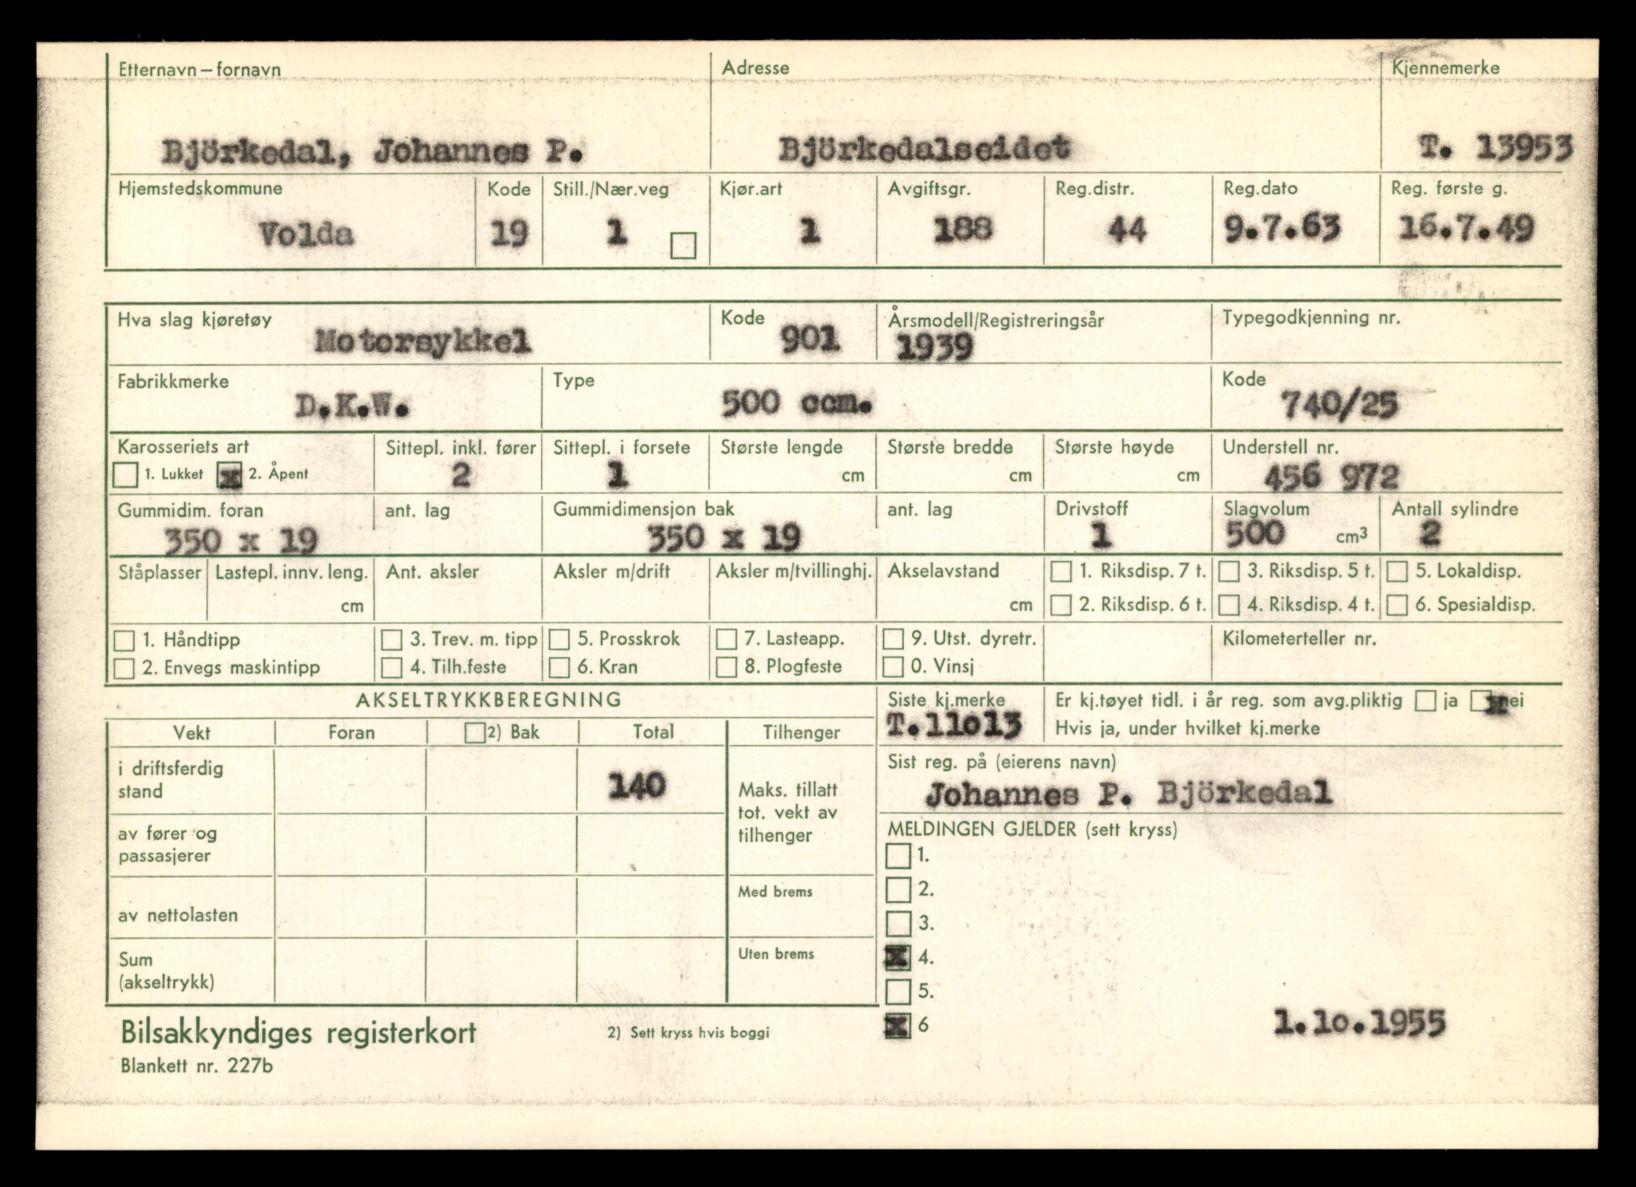 Etternavn – fornavn Adresse Kjennemerke
Björkedal, Johannes P. Björkedalseidet T. 13953
Hjemstedskommune Kode Still./Nær.veg Kjør.art Avgiftsgr. Reg.distr. Reg.dato Reg. første g.
Volda 19 1 1 188 44 9.7.63 16.7.49
Hva slag kjøretøy Kode Årsmodell/Registreringsår Typegodkjenning nr.
Motorsykkel 901 1939
Fabrikkmerke Type Kode
D.K.W. 500 ccm. 740/25
Karosseriets art Sittepl. inkl. fører Sittepl. i forsete Største lengde Største bredde Største høyde Understell nr.
1. Lukket x 2. Åpent 2 1 cm cm cm 456 972
Gummidim. foran ant. lag Gummidimensjon bak ant. lag Drivstoff Slagvolum Antall sylindre
350 x 19 350 x 19 1 500 cm³ 2
Ståplasser Lastepl. innv. leng. Ant. aksler Aksler m/drift Aksler m/tvillinghj. Akselavstand 1. Riksdisp. 7 t. 3. Riksdisp. 5 t. 5. Lokaldisp.
cm cm 2. Riksdisp. 6 t. 4. Riksdisp. 4 t. 6. Spesialdisp.
1. Håndtipp 3. Trev. m. tipp 5. Prosskrok 7. Lasteapp. 9. Utst. dyretr. Kilometerteller nr.
2. Envegs maskintipp 4. Tilh.feste 6. Kran 8. Plogfeste 0. Vinsj
AKSELTRYKKBEREGNING Siste kj.merke Er kj.tøyet tidl. i år reg. som avg.pliktig ja x nei
T.11013 Hvis ja, under hvilket kj.merke
Vekt Foran 2) Bak Total Tilhenger
Sist reg. på (eierens navn)
Johannes P. Björkedal
i driftsferdig
stand
140
Maks. tillatt
tot. vekt av
tilhenger
av fører og
passasjerer
Med brems
av nettolasten
Uten brems
Sum
(akseltrykk)
MELDINGEN GJELDER (sett kryss)
1.
2.
3.
x 4.
5.
x 6 1.10.1955
Bilsakkyndiges registerkort 2) Sett kryss hvis boggi
Blankett nr. 227b